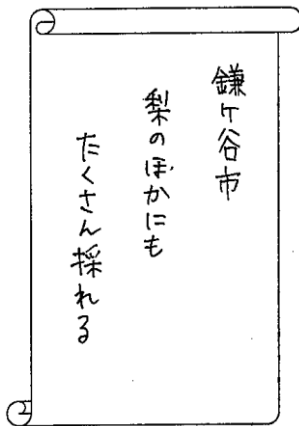 鎌ケ谷市
梨のほかにも
たくさん採れる